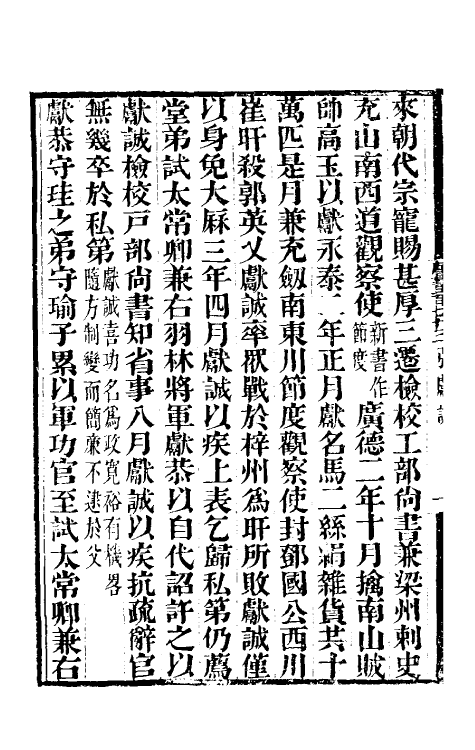 來朝代宗寵賜甚厚三遷檢校工部尚書兼梁州刺史
充山南西道觀察使新書作節度廣德二年十月擒南山賊
帥高玉以獻永泰二年正月獻名馬二絲絹雜貨共十
萬匹是月兼充劔南東川節度觀察使封鄧國公西川
崔旰殺郭英乂獻誠率眾戰於梓州為旰所敗獻誠僅
以身免大厤三年四月獻誠以疾上表乞歸私第仍薦
堂弟試太常卿兼右羽林將軍獻恭以自代詔許之以
獻誠檢校戸部尚書知省事八月獻誠以疾抗疏辭官
無幾卒於私第獻誠喜功名為政寬裕有機畧隨方制變而簡廉不逮於父
獻恭守珪之弟守瑜子累以軍功官至試太常卿兼右